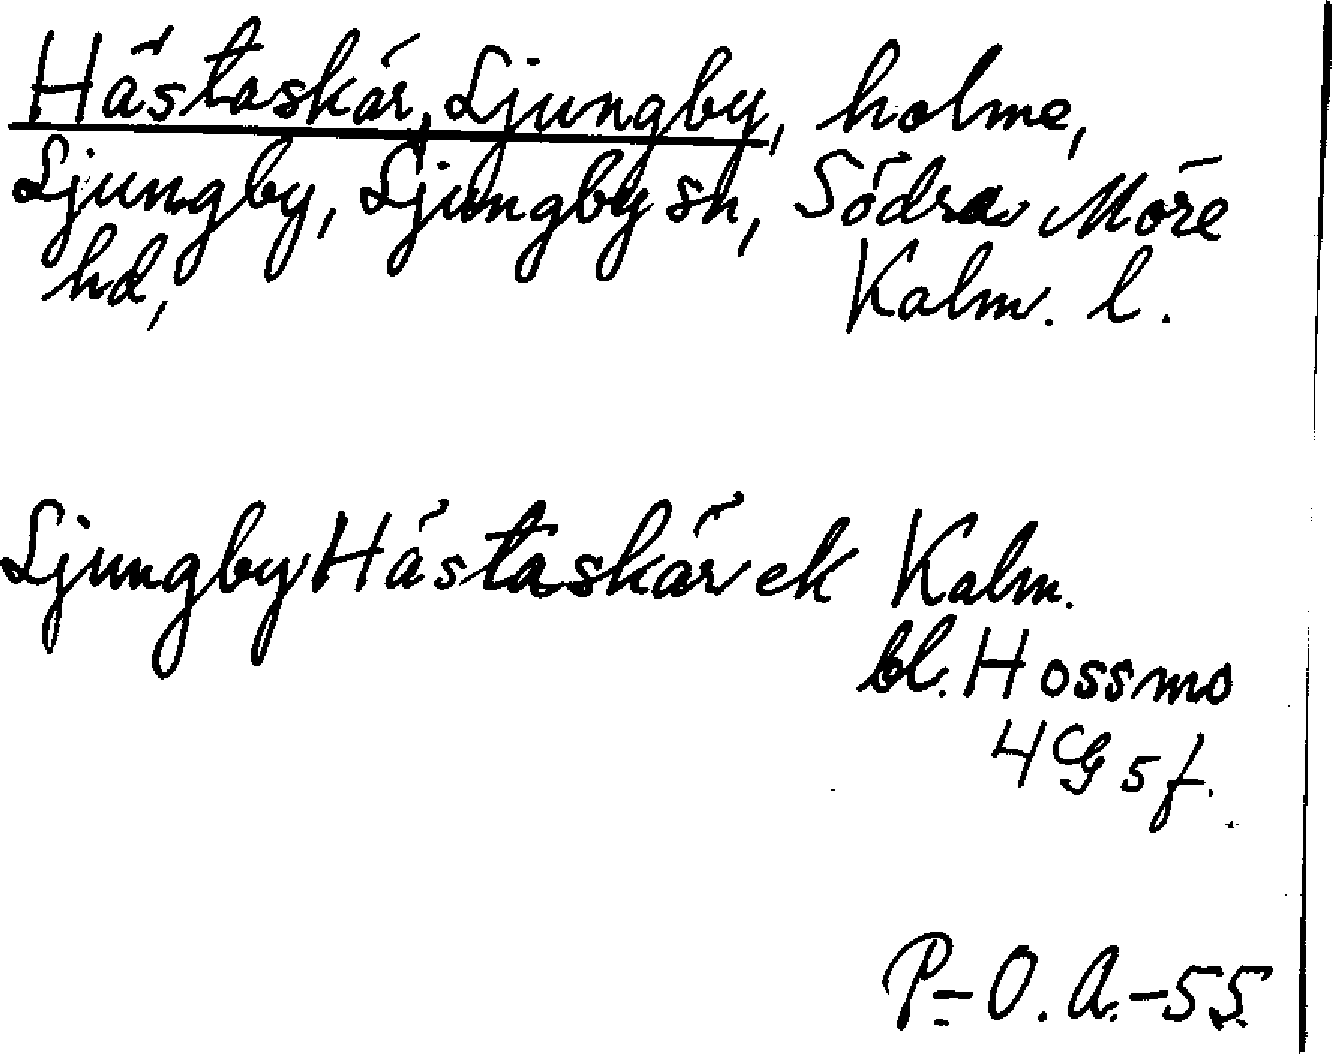 Hästaskär, Ljungby, holme,
Ljungby, Ljungby sn, Södra Möre
hd, Kalm. l.
Ljungby Hästaskär ek Kalm.
bl. Hossmo
4G5f.
P-O.A.-55